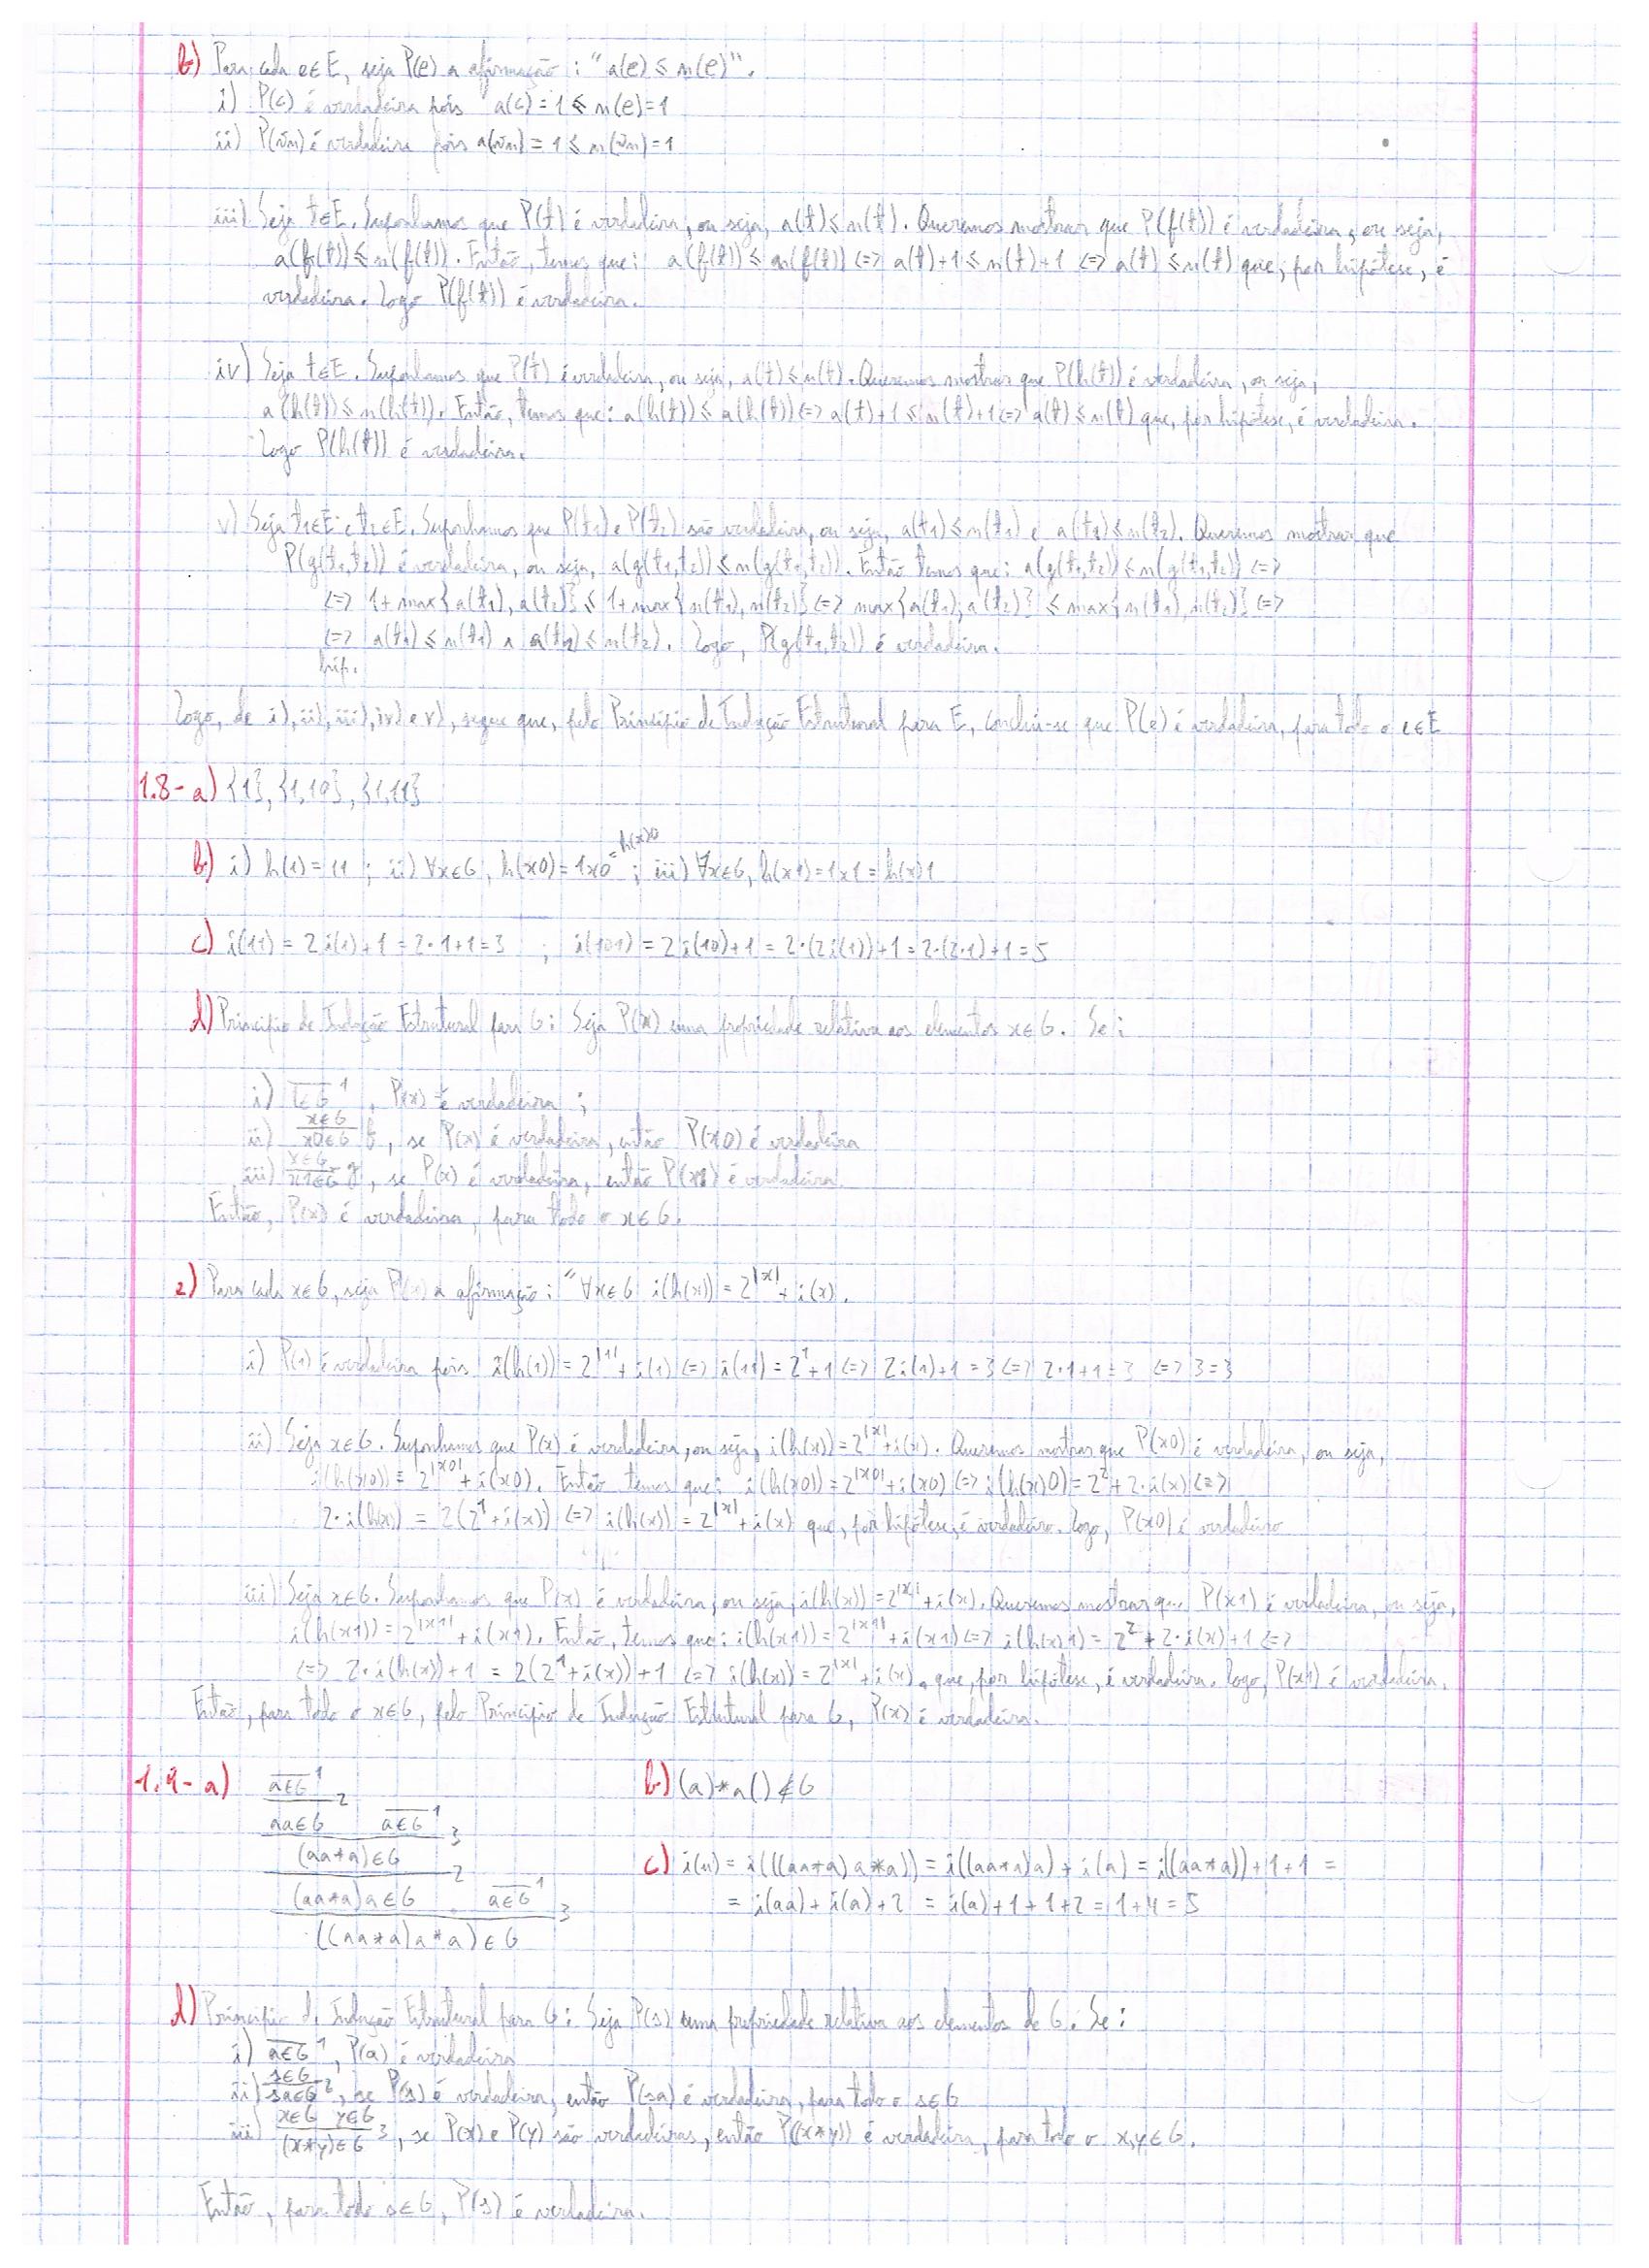 b) Para cada e∈E, seja P(e) a afirmação: "a(e) ≤ n(e)".
i) P(c) é verdadeira pois a(c) = 1 ≤ n(e) = 1
ii) P(vn) é verdadeira pois a(vn) = 1 ≤ n(vn) = 1
iii) Seja t∈E. Suponhamos que P(t) é verdadeira, ou seja, a(t) ≤ n(t). Queremos mostrar que P(f(t)) é verdadeira, ou seja,
a(f(t)) ≤ n(f(t)). Então, temos que: a(f(t)) ≤ n(f(t)) <=> a(t)+1 ≤ n(t)+1 <=> a(t) ≤ n(t) que, por hipótese, é
verdadeira. Logo P(f(t)) é verdadeira.
iv) Seja t∈E. Suponhamos que P(t) é verdadeira, ou seja, a(t) ≤ n(t). Queremos mostrar que P(h(t)) é verdadeira, ou seja,
a(h(t)) ≤ n(h(t)). Então, temos que: a(h(t)) ≤ a(h(t)) <=> a(t)+1 ≤ n(t)+1 <=> a(t) ≤ n(t) que, por hipótese, é verdadeira.
Logo P(h(t)) é verdadeira.
v) Seja t1∈E e t2∈E. Suponhamos que P(t1) e P(t2) são verdadeira, ou seja, a(t1) ≤ n(t1) e a(t2) ≤ n(t2). Queremos mostrar que
P(g(t1,t2)) é verdadeira, ou seja, a(g(t1,t2)) ≤ n(g(t1,t2)). Então temos que: a(g(t1,t2)) ≤ n(g(t1,t2)) <=>
<=> 1+max{a(t1), a(t2)} ≤ 1+max{n(t1), n(t2)} <=> max{a(t1), a(t2)} ≤ max{n(t1), n(t2)} <=>
<=> a(t1) ≤ n(t1) ∧ a(t2) ≤ n(t2). Logo, P(g(t1,t2)) é verdadeira.
hip.
Logo, de i), ii), iii), iv) e v), segue que, pelo Princípio de Indução Estrutural para E, conclui-se que P(e) é verdadeira, para todo o e∈E
1.8- a) {1}, {1,10}, {1,11}
b) i) h(1) = 11 ; ii) ∀x∈G, h(x0) = 1x0 = h(x)0 ; iii) ∀x∈G, h(x1) = 1x1 = h(x)1
c) i(11) = 2i(1)+1 = 2·1+1 = 3 ; i(101) = 2i(10)+1 = 2·(2i(1))+1 = 2·(2·1)+1 = 5
d) Princípio de Indução Estrutural para G: Seja P(x) uma propriedade relativa aos elementos x∈G. Se:
i) ‾1∈G‾ 1, P(x) é verdadeira ;
ii) x∈G / x0∈G f, se P(x) é verdadeira, então P(x0) é verdadeira
iii) x∈G / x1∈G g, se P(x) é verdadeira, então P(x1) é verdadeira.
Então, P(x) é verdadeira, para todo o x∈G.
e) Para cada x∈G, seja P(x) a afirmação: "∀x∈G i(h(x)) = 2^|x| + i(x).
i) P(1) é verdadeira pois i(h(1)) = 2^|1| + i(1) <=> i(11) = 2^1 + 1 <=> 2i(1)+1 = 3 <=> 2·1+1 = 3 <=> 3 = 3
ii) Seja x∈G. Suponhamos que P(x) é verdadeira, ou seja, i(h(x)) = 2^|x| + i(x). Queremos mostrar que P(x0) é verdadeira, ou seja,
i(h(x0)) = 2^|x0| + i(x0). Então temos que: i(h(x0)) = 2^|x0| + i(x0) <=> i(h(x)0) = 2^2 + 2·i(x) <=>
2·i(h(x)) = 2(2^1 + i(x)) <=> i(h(x)) = 2^|x| + i(x) que, por hipótese, é verdadeiro. Logo, P(x0) é verdadeiro
iii) Seja x∈G. Suponhamos que P(x) é verdadeira, ou seja, i(h(x)) = 2^|x| + i(x). Queremos mostrar que P(x1) é verdadeira, ou seja,
i(h(x1)) = 2^|x1| + i(x1). Então, temos que: i(h(x1)) = 2^|x1| + i(x1) <=> i(h(x)1) = 2^2 + 2·i(x)+1 <=>
<=> 2·i(h(x))+1 = 2(2^1 + i(x))+1 <=> i(h(x)) = 2^|x| + i(x), que, por hipótese, é verdadeira. Logo, P(x1) é verdadeira.
Então, para todo o x∈G, pelo Princípio de Indução Estrutural para G, P(x) é verdadeira.
1.9- a) a∈G 1
aa∈G 2 a∈G 1
(aa*a)∈G 3
(aa*a)a∈G 2 a∈G 1
((aa*a)a*a)∈G 3
b) (a)*a() ∉ G
c) i(u) = i(((aa*a)a*a)) = i((aa*a)a) + i(a) = i((aa*a))+1+1 =
= i(aa)+i(a)+2 = i(a)+1+1+2 = 1+4 = 5
d) Princípio de Indução Estrutural para G: Seja P(s) uma propriedade relativa aos elementos de G. Se:
i) a∈G 1, P(a) é verdadeira
ii) s∈G / sa∈G 2, se P(s) é verdadeira, então P(sa) é verdadeira, para todo o s∈G
iii) x∈G y∈G / (x*y)∈G 3, se P(x) e P(y) são verdadeiras, então P((x*y)) é verdadeira, para todo o x,y∈G.
Então, para todo s∈G, P(s) é verdadeira.